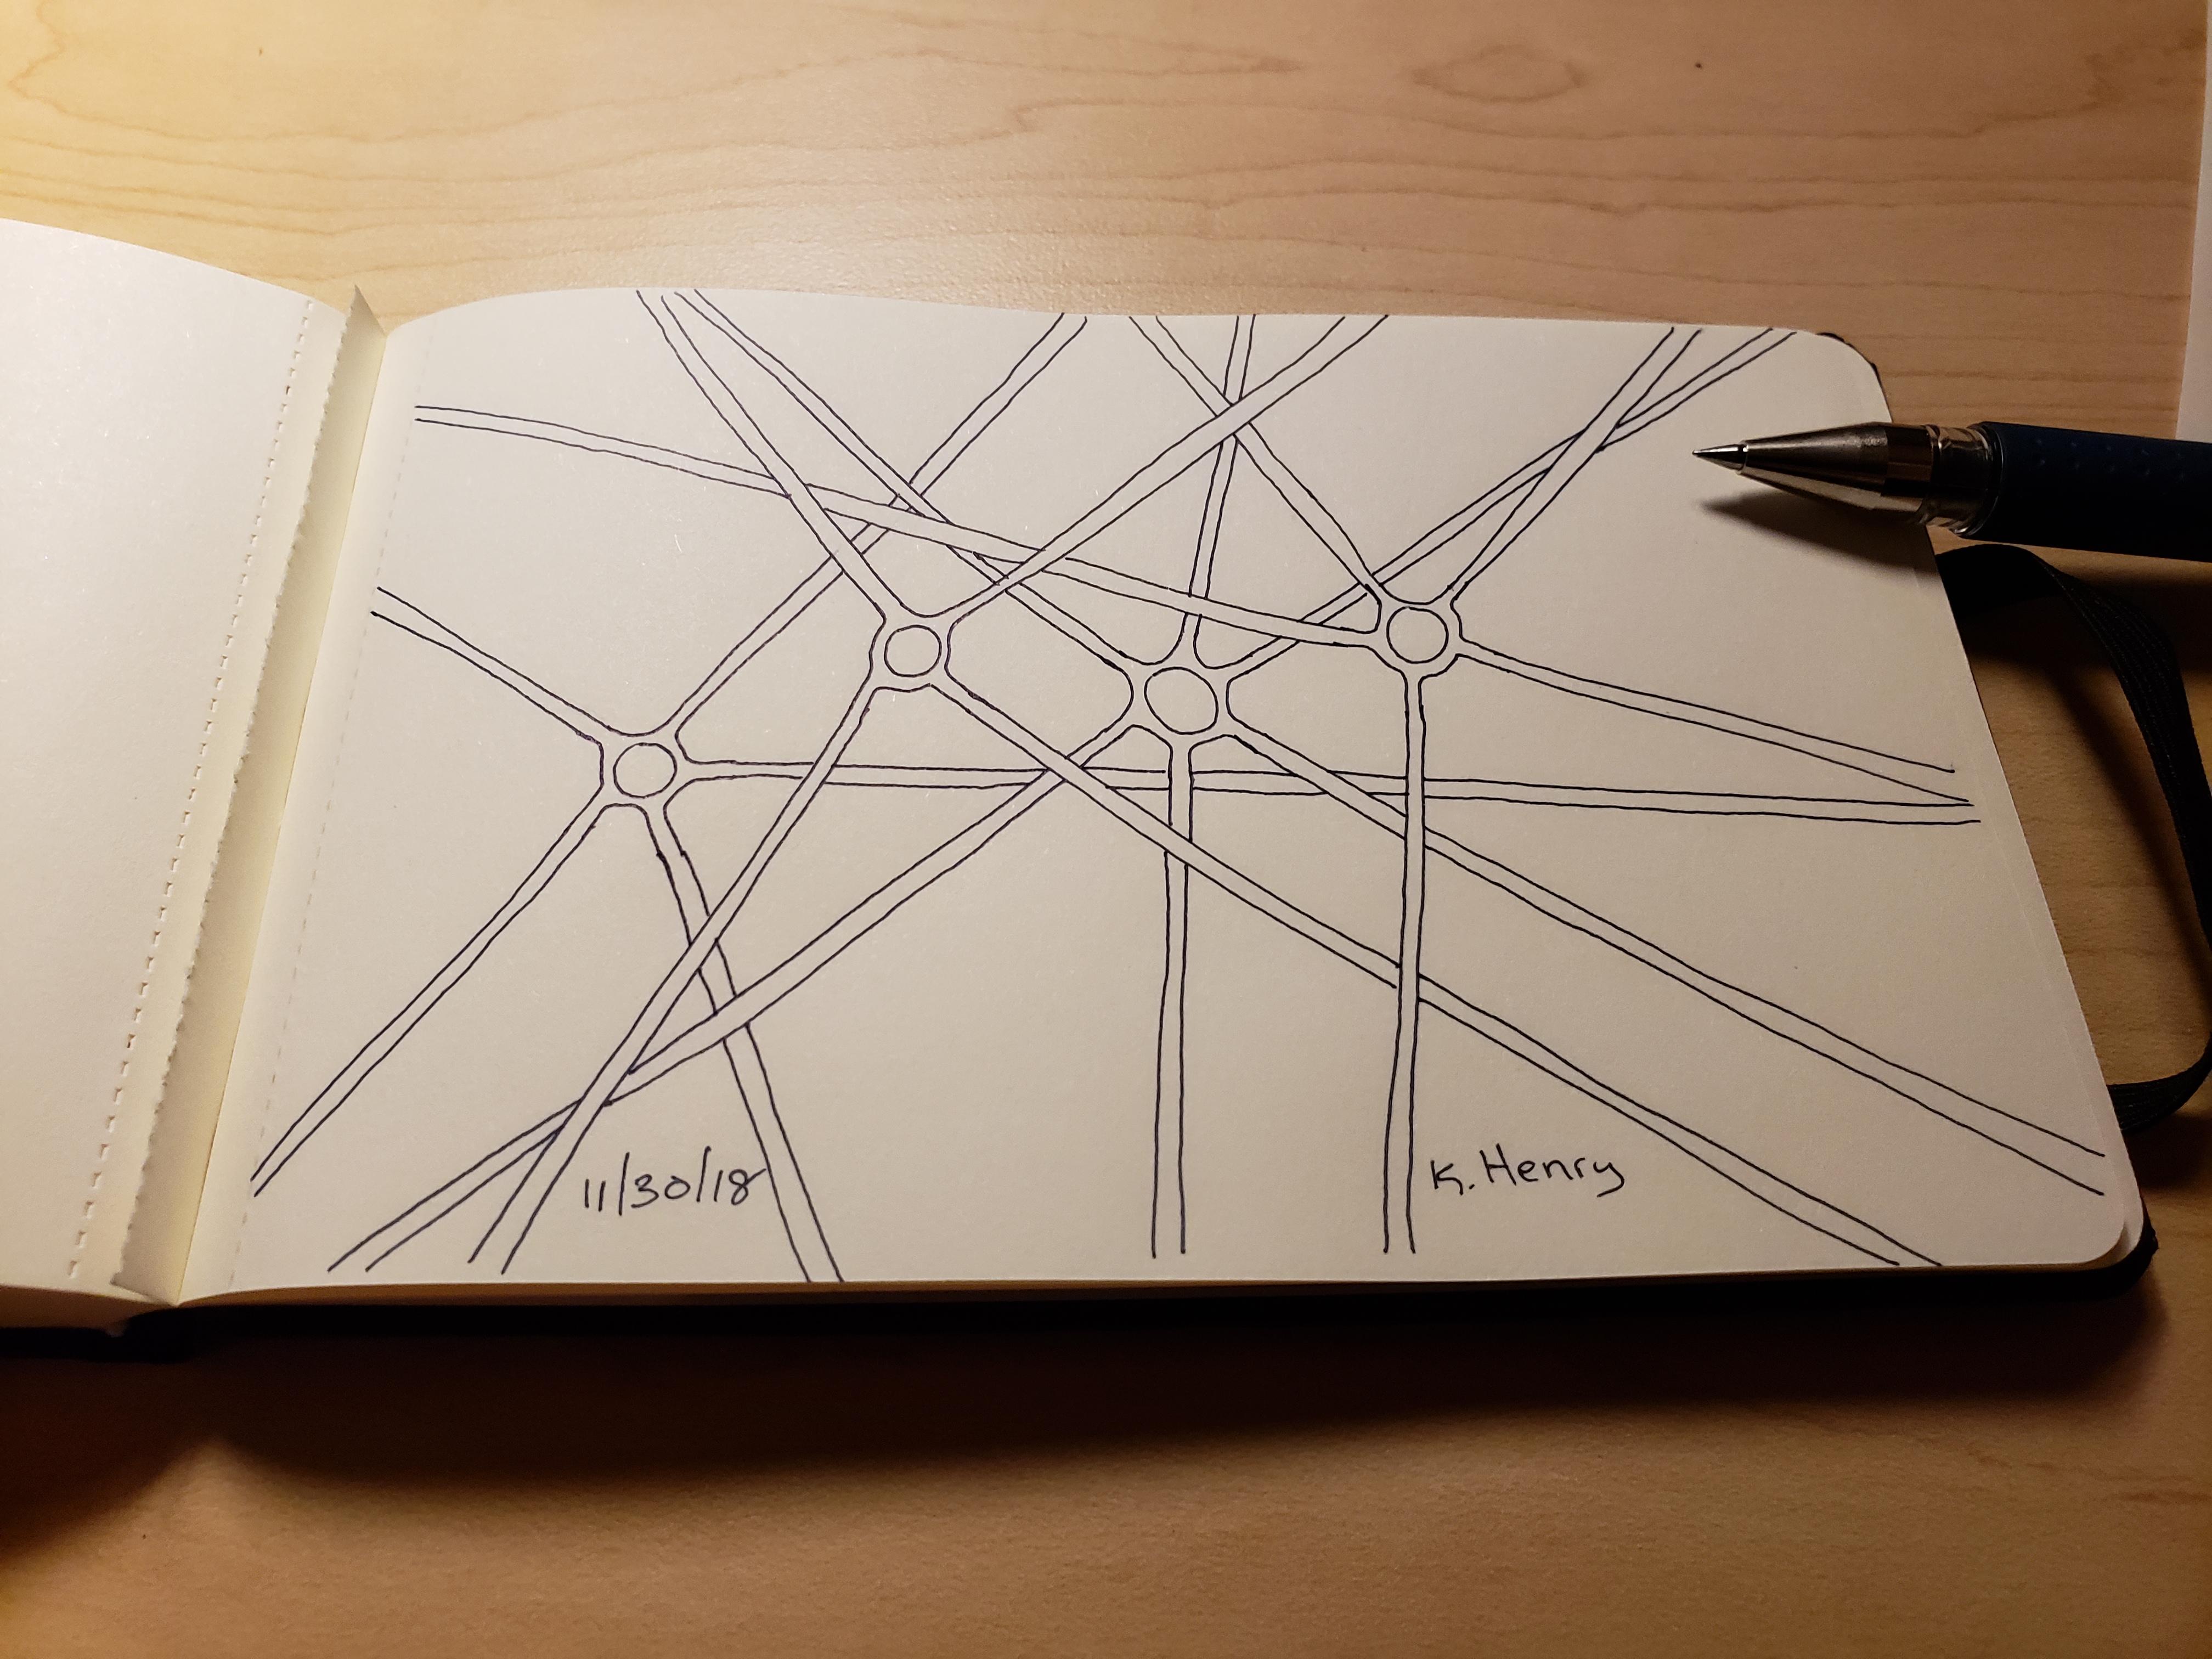 11/30/18
K. Henry